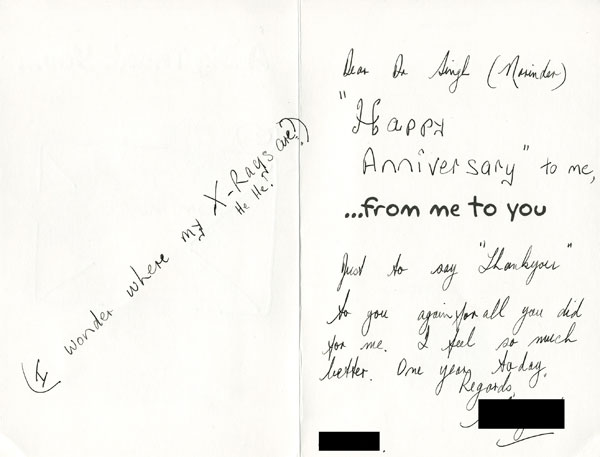 (I wonder where my X-Rays are?)
He He!
Dear Dr Singh (Narinder)
"Happy
Anniversary" to me,
...from me to you
Just to say "Thankyou"
to you again for all you did
for me. I feel so much
better. One year today.
Regards